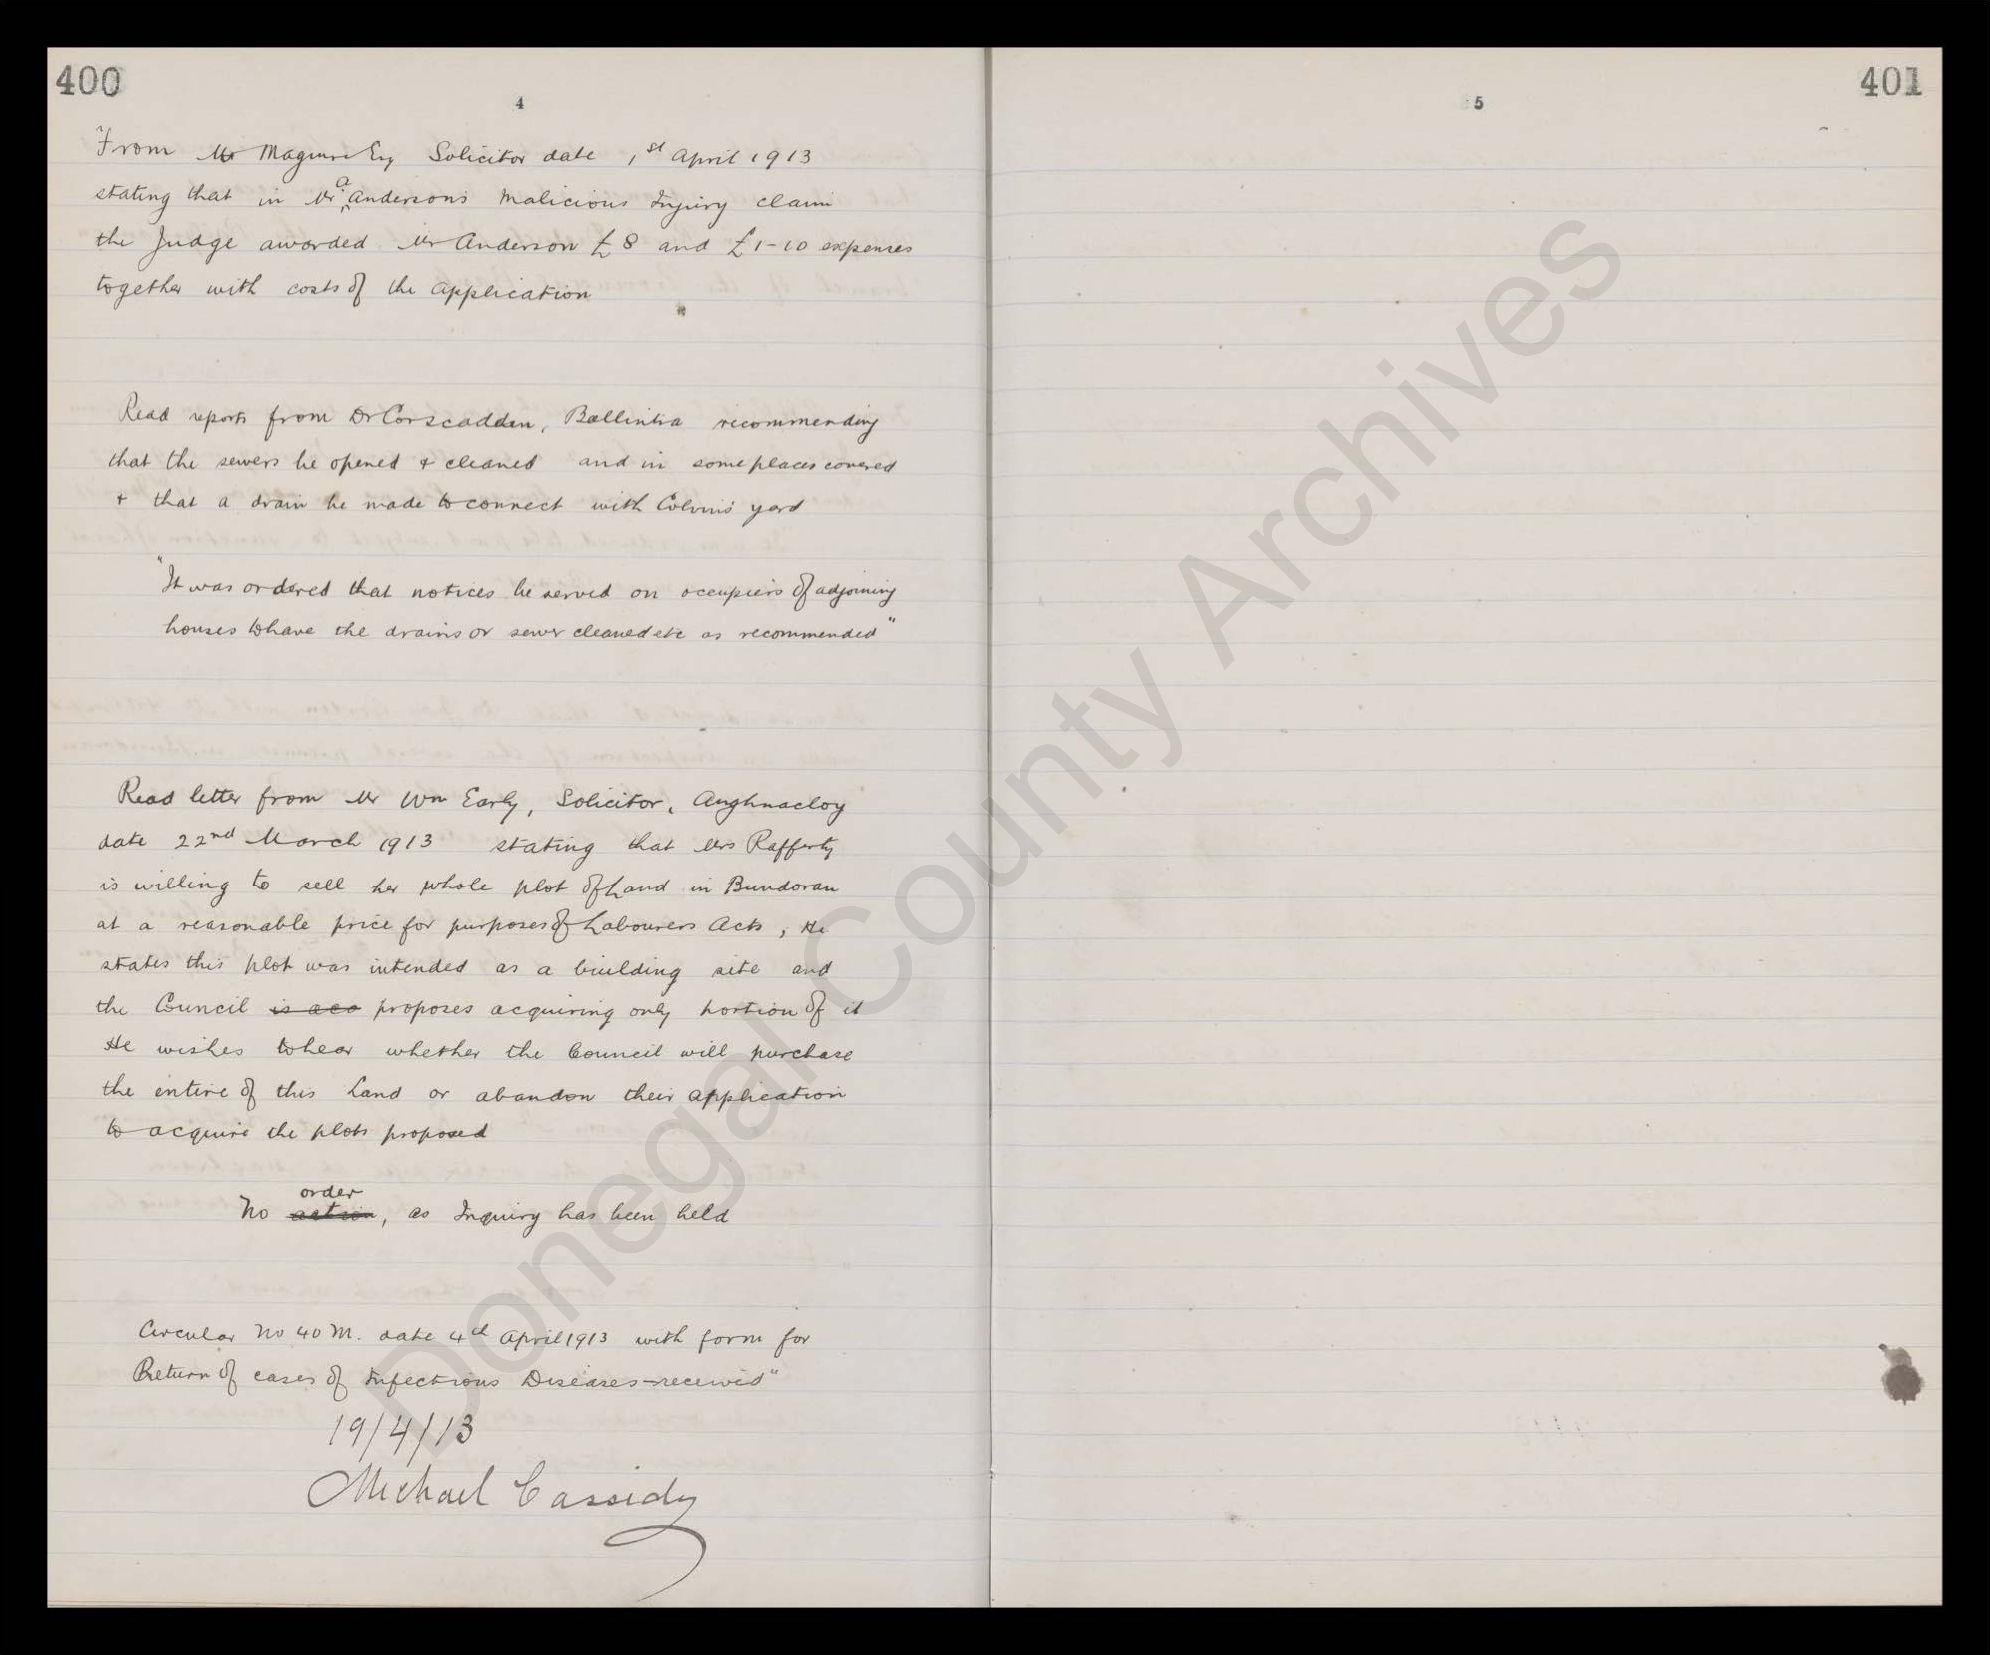 400
4
From Mr Maguire Esq Solicitor date 1st April 1913
stating that in Mr A Anderson's Malicious Injury claim
the Judge awarded Mr Anderson £8 and £1-10 expenses
together with costs of the application
Read reports from Dr Corscadden, Ballintra recommending
that the sewers be opened & cleaned and in some places covered
& that a drain be made to connect with Colvin's yard
"It was ordered that notices be served on occupiers of adjoining
houses to have the drains or sewer cleaned etc as recommended"
Read letter from Mr Wm Early, Solicitor, Aughnacloy
date 22nd March 1913 stating that Mrs Rafferty
is willing to sell her whole plot of Land in Bundoran
at a reasonable price for purposes of Labourers Acts, He
states this plot was intended as a building site and
the Council is aco proposes acquiring only portion of it
He wishes to hear whether the Council will purchase
the entire of this Land or abandon their application
to acquire the plots proposed
order
No action, as Inquiry has been held
Circular No 40 M. date 4th April 1913 with form for
Return of cases of Infectious Diseases - received"
19/4/13
Michael Cassidy
5
401
Donegal County Archives